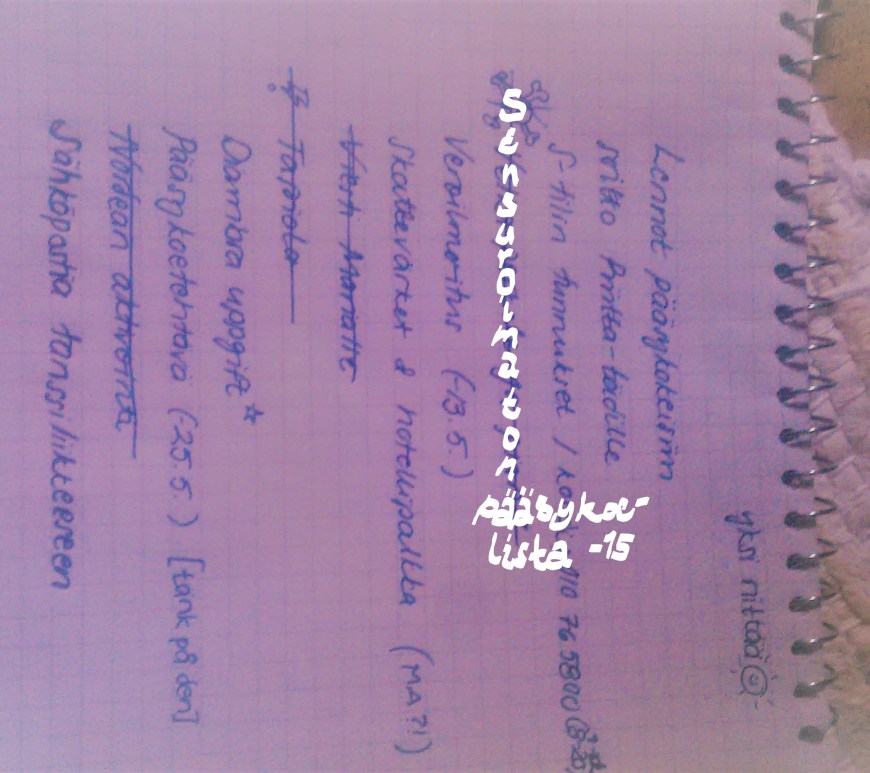 yksi riittää
Lennot pääsykokeisiin
soitto Britta-tädille
S-tilin tunnukset / 110 765800
Veroilmoitus (-13.5.)
Skatteverket & hotellipalkka (MA?!)
Viesti Marialle
Tapiola
Diambra uppgift *
Pääsykoetehtävä (-25.5.) [tänk på den]
Nordean aktivointi
Sähköpostia tanssiliikkeeseen
Sensuroimaton
pääsykoe-
lista -15